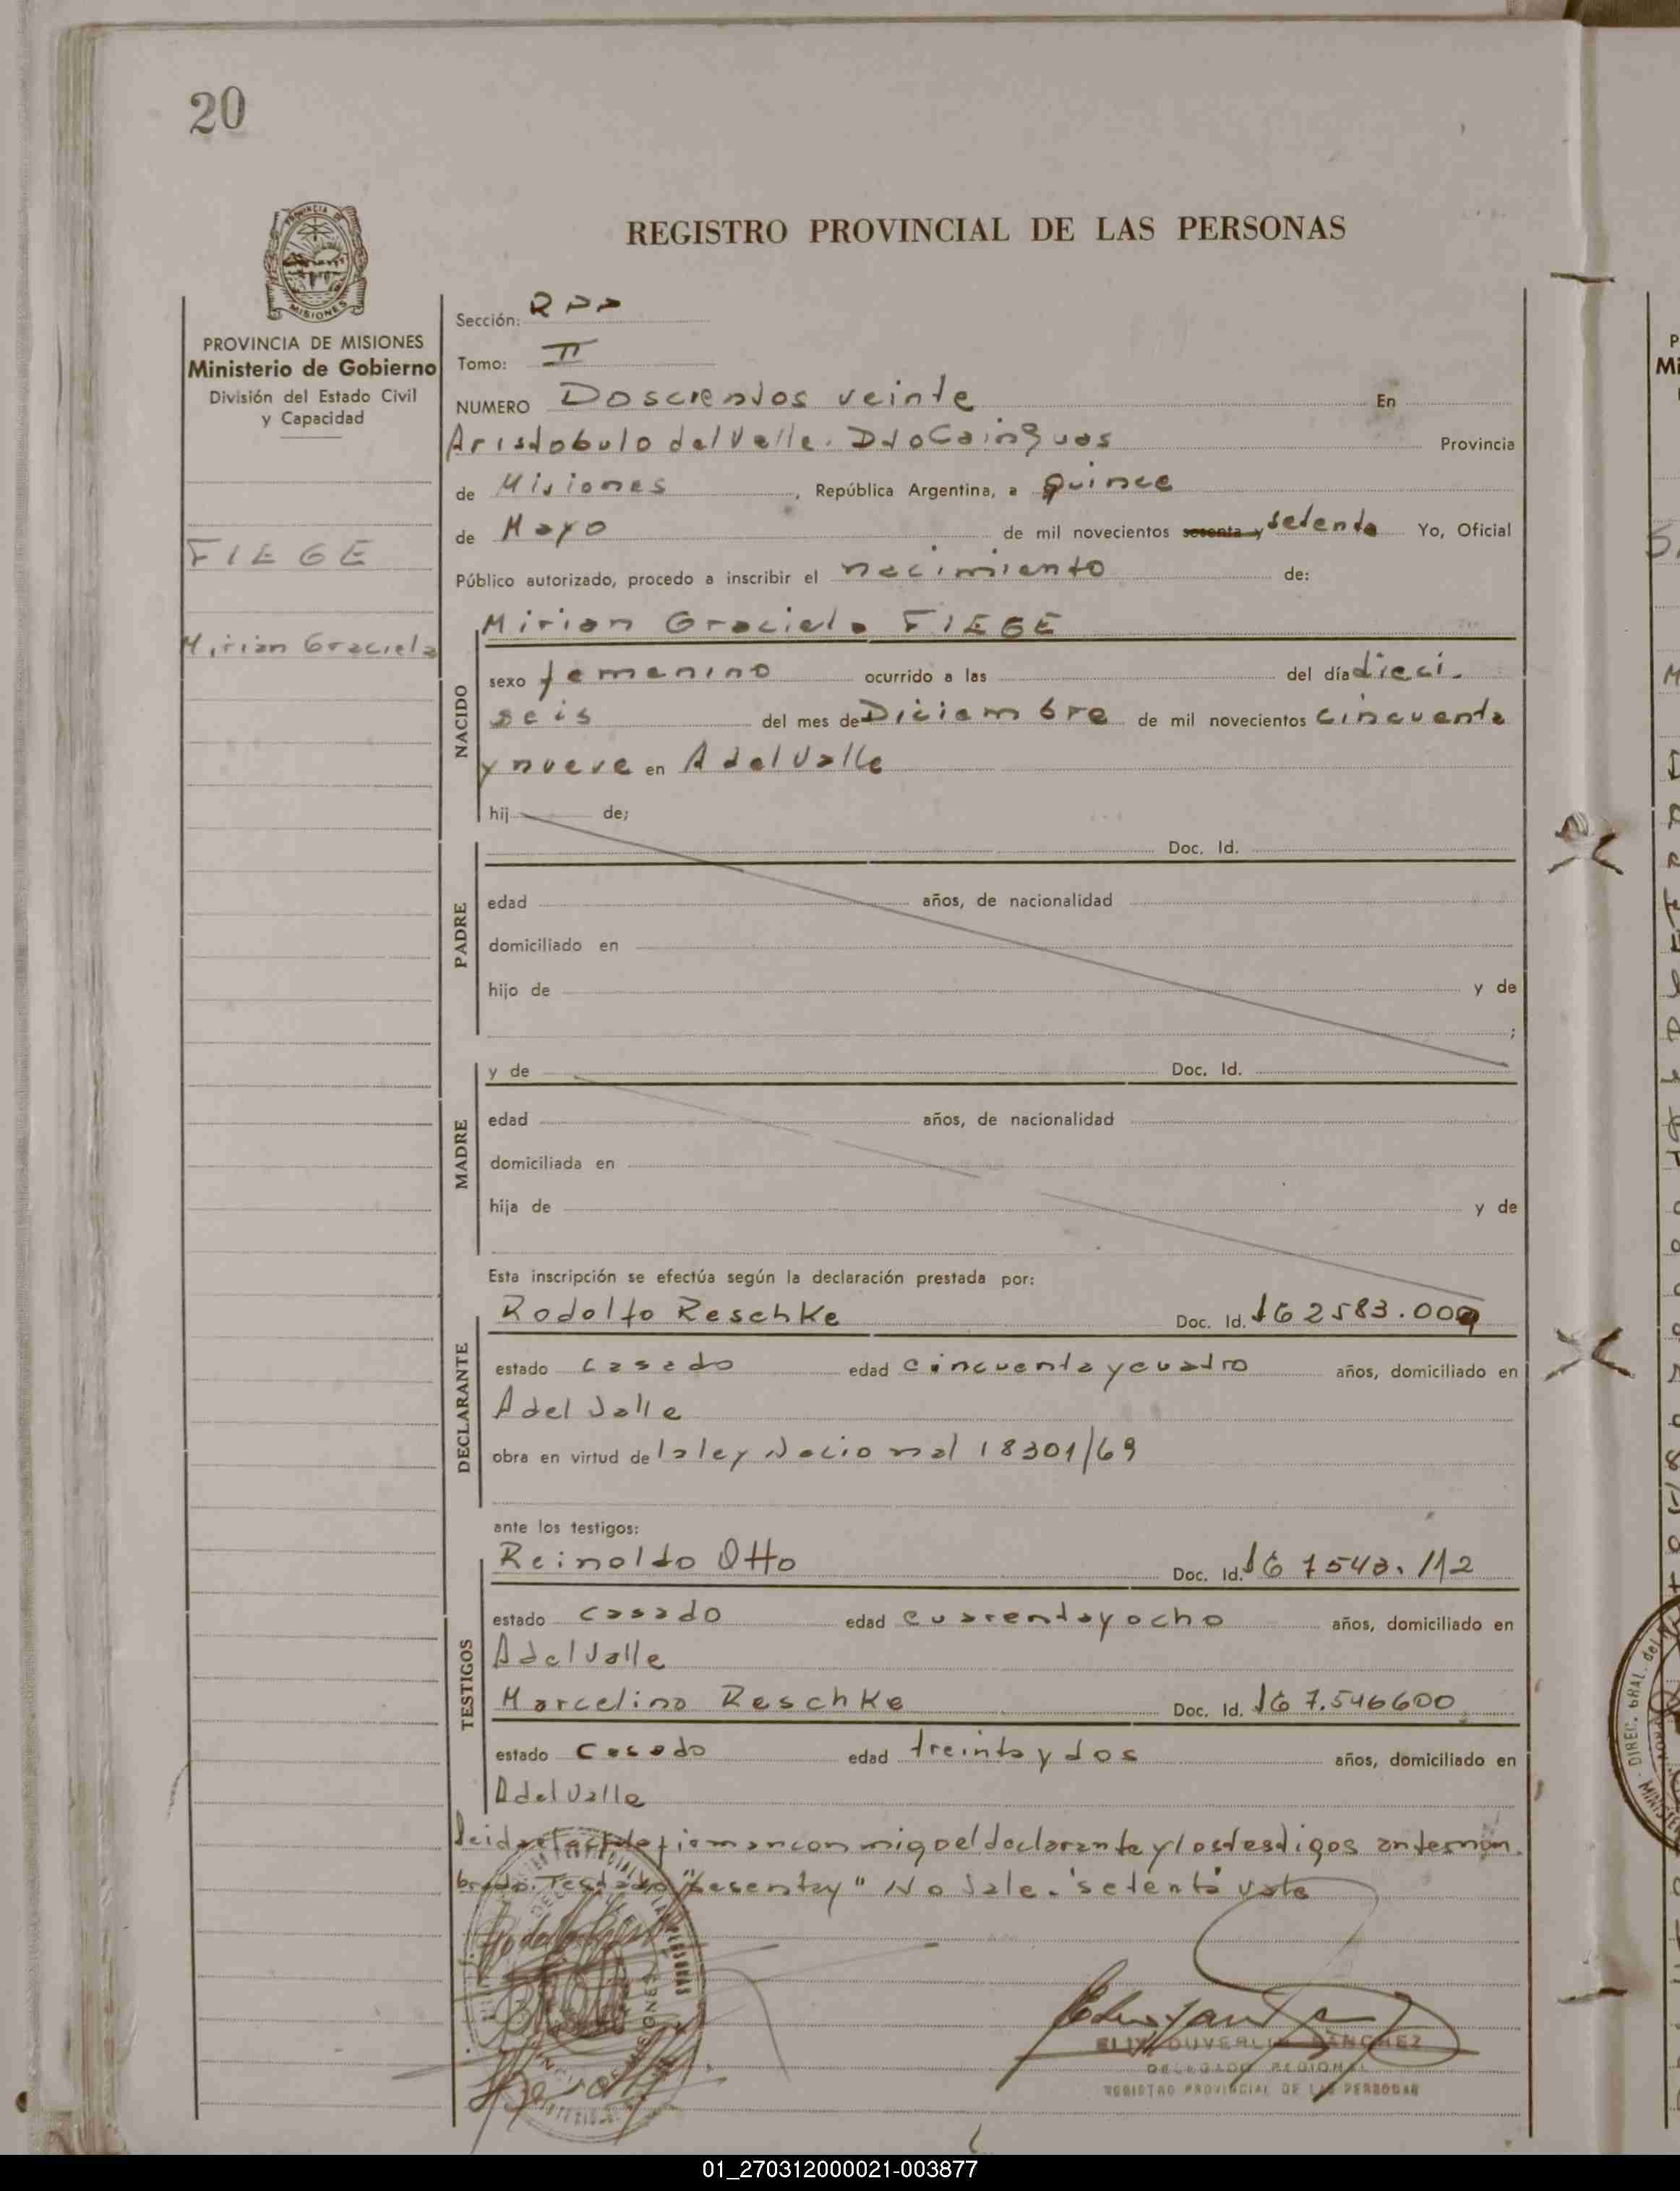 20
REGISTRO PROVINCIAL DE LAS PERSONAS
PROVINCIA DE MISIONES
Ministerio de Gobierno
División del Estado Civil
y Capacidad
FIEGE
Mirian Graciela
Sección:
Tomo: II
NUMERO Doscientos veinte En
Aristobulo del Valle. Dto Cainguas Provincia
de Misiones, República Argentina, a quince
de Mayo de mil novecientos sesenta y setenta Yo, Oficial
Público autorizado, procedo a inscribir el nacimiento de:
Mirian Graciela FIEGE
NACIDO
sexo femenino ocurrido a las del día dieci-
seis del mes de Diciembre de mil novecientos cincuenta
y nueve en A del Valle
hij de;
PADRE
Doc. Id.
edad años, de nacionalidad
domiciliado en
hijo de y de
;
MADRE
y de Doc. Id.
edad años, de nacionalidad
domiciliada en
hija de y de
Esta inscripción se efectúa según la declaración prestada por:
DECLARANTE
Rodolfo Reschke Doc. Id. 2583.009
estado casado edad cincuenta y cuatro años, domiciliado en
A del Valle
obra en virtud de la ley Nacional 18301/69
ante los testigos:
TESTIGOS
Reinoldo Otto Doc. Id.
estado casado edad cuarenta y ocho años, domiciliado en
A del Valle
Marcelino Reschke Doc. Id. 7.546600
estado Casado edad treinta y dos años, domiciliado en
A del Valle
firman conmigo el declarante y los testigos antes nom-
brado. Testado "sesenta y" No Vale. "setenta" vale
SANCHEZ
DELEGADO REGIONAL
REGISTRO PROVINCIAL DE LAS PERSONAS
01_270312000021-003877